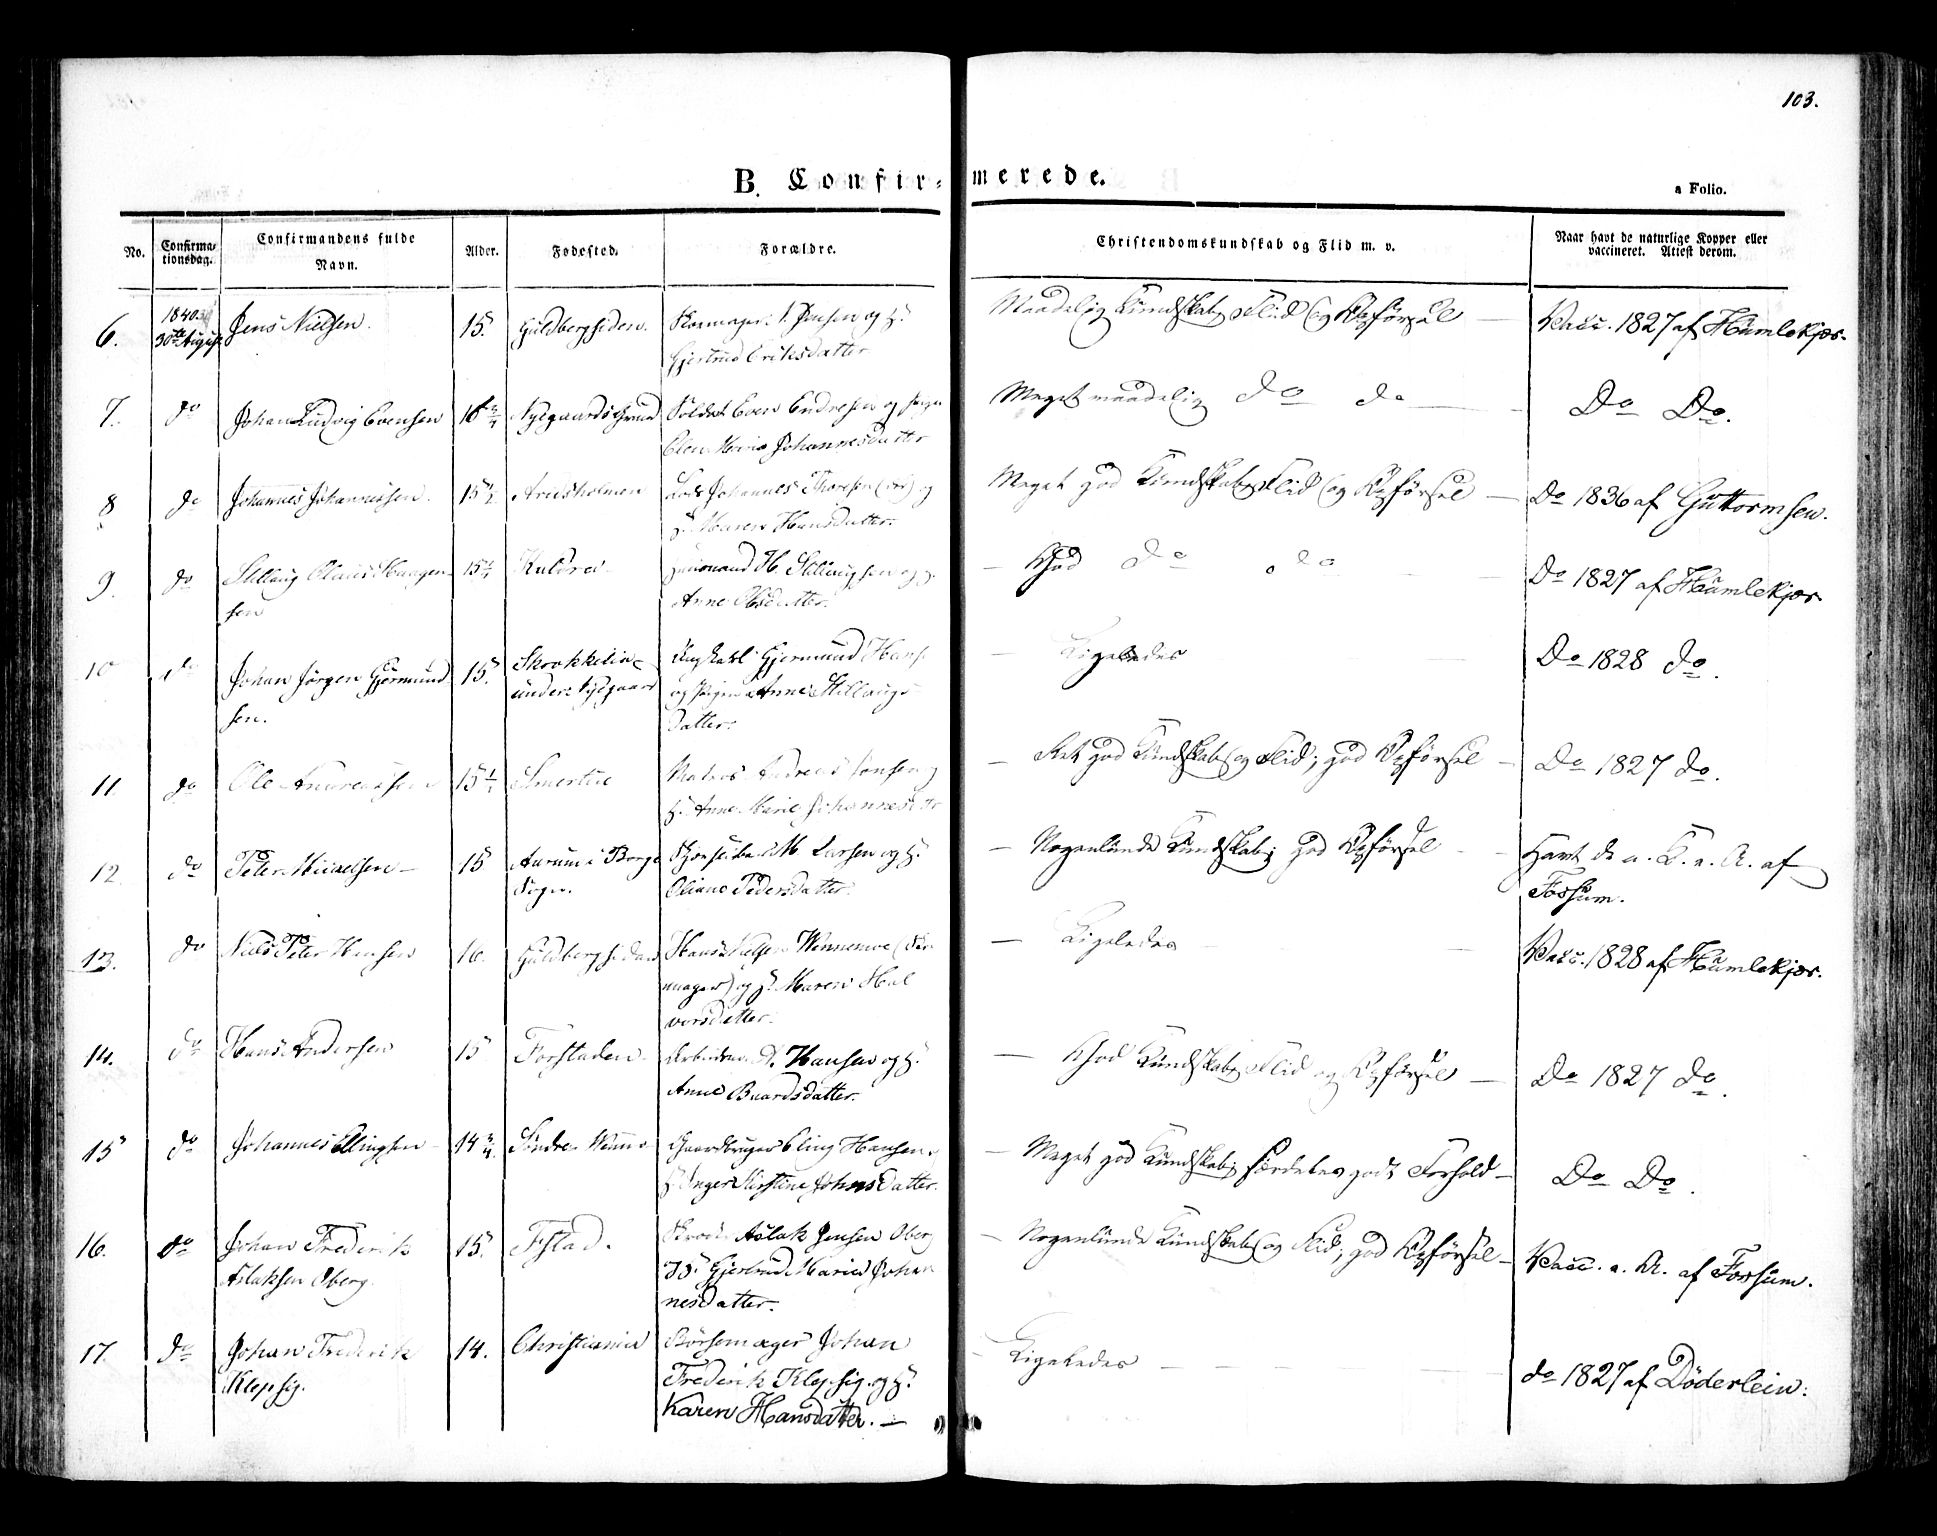 103.
B. Confirmerede.
a Folio.
No. Confirmationsdag. Confirmandens fulde Navn. Alder. Fødested. Forældre. Christendomskundskab og Flid m. v. Naar havt de naturlige Kopper eller vaccineret. Attest derom.
6. 1840 30te August Jens Nielsen. 15. Guldbergsiden. Skomager N. Jensen og H. Maadelig Kundskab, Flid og Opførsel — Vacc. 1827 af Humlekjær.
Gjertrud Eriksdatter
7. do Johan Ludvig Evensen 16 3/4 Nygaards Grund Soldat Even Endresen og Pigen Meget maadelig do do — Do Do.
Olea Maria Johannesdatter
8 do Johannes Johannessen. 15 1/2 Arilsholmen Lods Johannes Thoresen og Meget god Kundskab, Flid og Opførsel — Do 1836 af Guttormsen.
H. Maren Hansdatter.
9. do Stillaug Olaus Haagen- 15 1/4 Kuldra H. Stillaugsen og H. — God do do Do 1827 af Humlekjær
sen Anne Olsdatter.
10 do Johan Jørgen Gjermund- 15. Skrokkelia Gjermund Hans. — Ligeledes Do 1828 do.
sen. under Nygaard og Pigen Anne Stillaugs-
datter.
11. do Ole Andreassen 15 1/4 Smertue Matros Andreas Jonsen og — Ret god Kundskab og Flid; god Opførsel — Do 1827 do.
H. Anne Marie Johannesdtr
12. do Peter Michaelsen — 15 Aurum i Borge M. Larsen og H. — Nogenlunde Kundskab; god Opførsel Havt d. n. K. e. A. af
Sogn. Oliane Pedersdatter. Fossum.
13. do Niels Peter Hansen 16. Guldbergsiden Hans Nielsen Wennemoe — Ligeledes Vacc. 1828 af Humlekjær.
mager) og H. Maren Hal
vorsdatter.
14. do Hans Andersen 15 Forstaden. Arbeidsm. A. Hansen og H. — God Kundskab, Flid og Opførsel — Do 1827 do.
Anne Baardsdatter.
15 do Johannes Ellingsen 14 3/4. Søndre Gaardbruger Elling Hansen — Meget god Kundskab; særdeles godt Forhold — Do Do.
H. Inger Kirstine Johnsdatter.
16. do Johan Frederik 15. Fstad. Aslak Jensen Oberg — Nogenlunde Kundskab og Flid; god Opførsel — Vacc. e. A. af Fossum.
Aslaksen Oberg. H. Gjertrud Marie Johan
nesdatter.
17. do Johan Frederik 14. Christiania Børsemager Johan Ligeledes — do 1827 af Döderlein.
Klepsig. Frederik Klepsig og H.
Karen Hansdatter. —